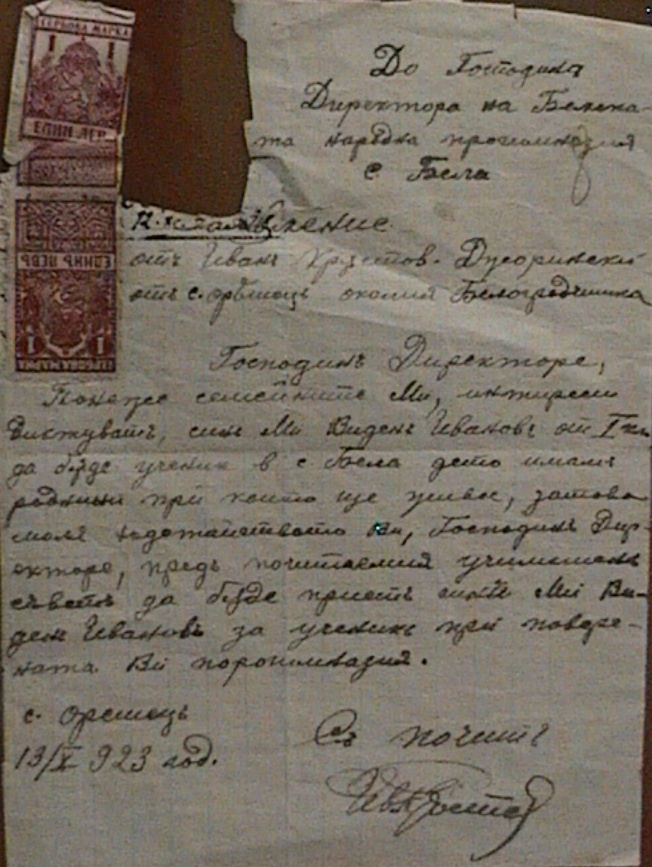 ГЕРБОВА МАРКА
1 1
ЕДИН ЛЕВ
ЕДИНЪ ЛЕВЪ
1 1
ГЕРБОВА МАРКА
До Господина
Директора на Белска-
та народна прогимназия
с Бела
отъ Иванъ Кръстов.
отъ с. орѣшецъ околия Белоградчишка
Господинъ Директоре,
Понеже семейните Ми, интиреси
диктуватъ, синъ Ми Виденъ Ивановъ от I кл.
да бѫде ученик в с. Бела дето имамъ
роднини при които ще живее, затова
моля ходотайството Ви, Господинъ Дир-
екторе, предъ почитаемия учителскъ
съветъ да бѫде приетъ синъ Ми Ви-
ден Ивановъ за ученикъ при повере-
ната Ви порогимназия.
с. орешецъ
13/X 923 год.
Съ почитъ